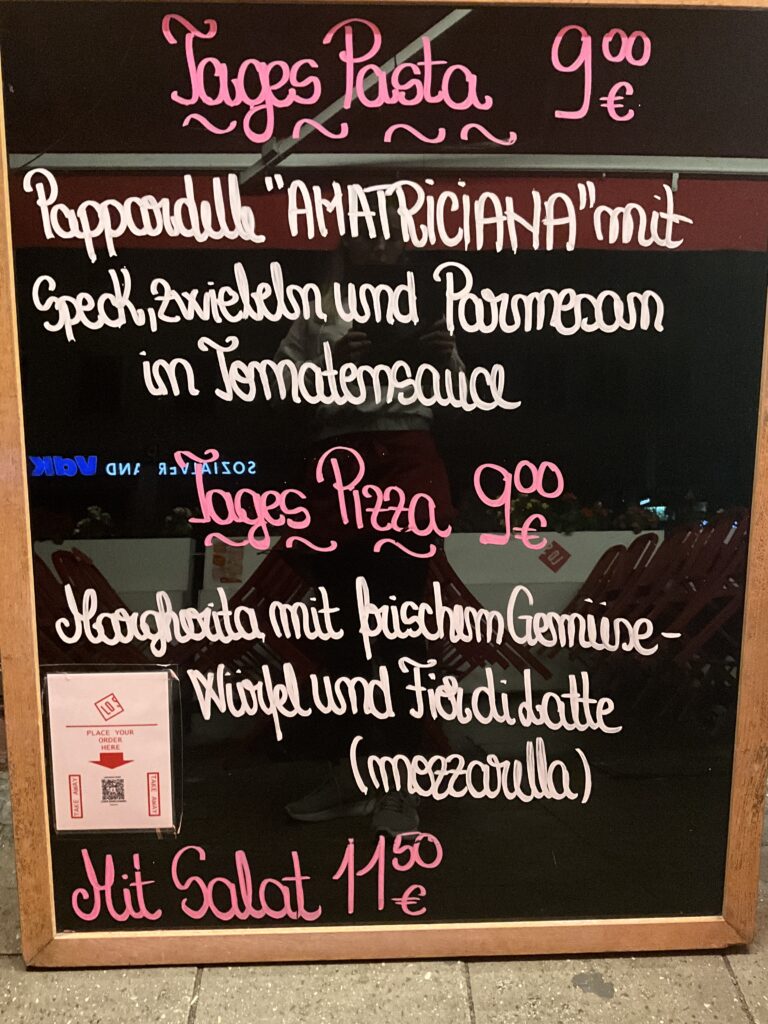 Tages Pasta 9⁰⁰ €
Pappardelle "AMATRiCiANA" mit
Speck, Zwiebeln und Parmesan
in Tomatensauce
VdK SOZIALVERBAND
Tages Pizza 9⁰⁰ €
Margherita mit frischem Gemüse-
Würfel und Fior di Latte
(mozzarella)
LO
PLACE YOUR
ORDER
HERE
TAKE AWAY
TAKE AWAY
Mit Salat 11⁵⁰ €